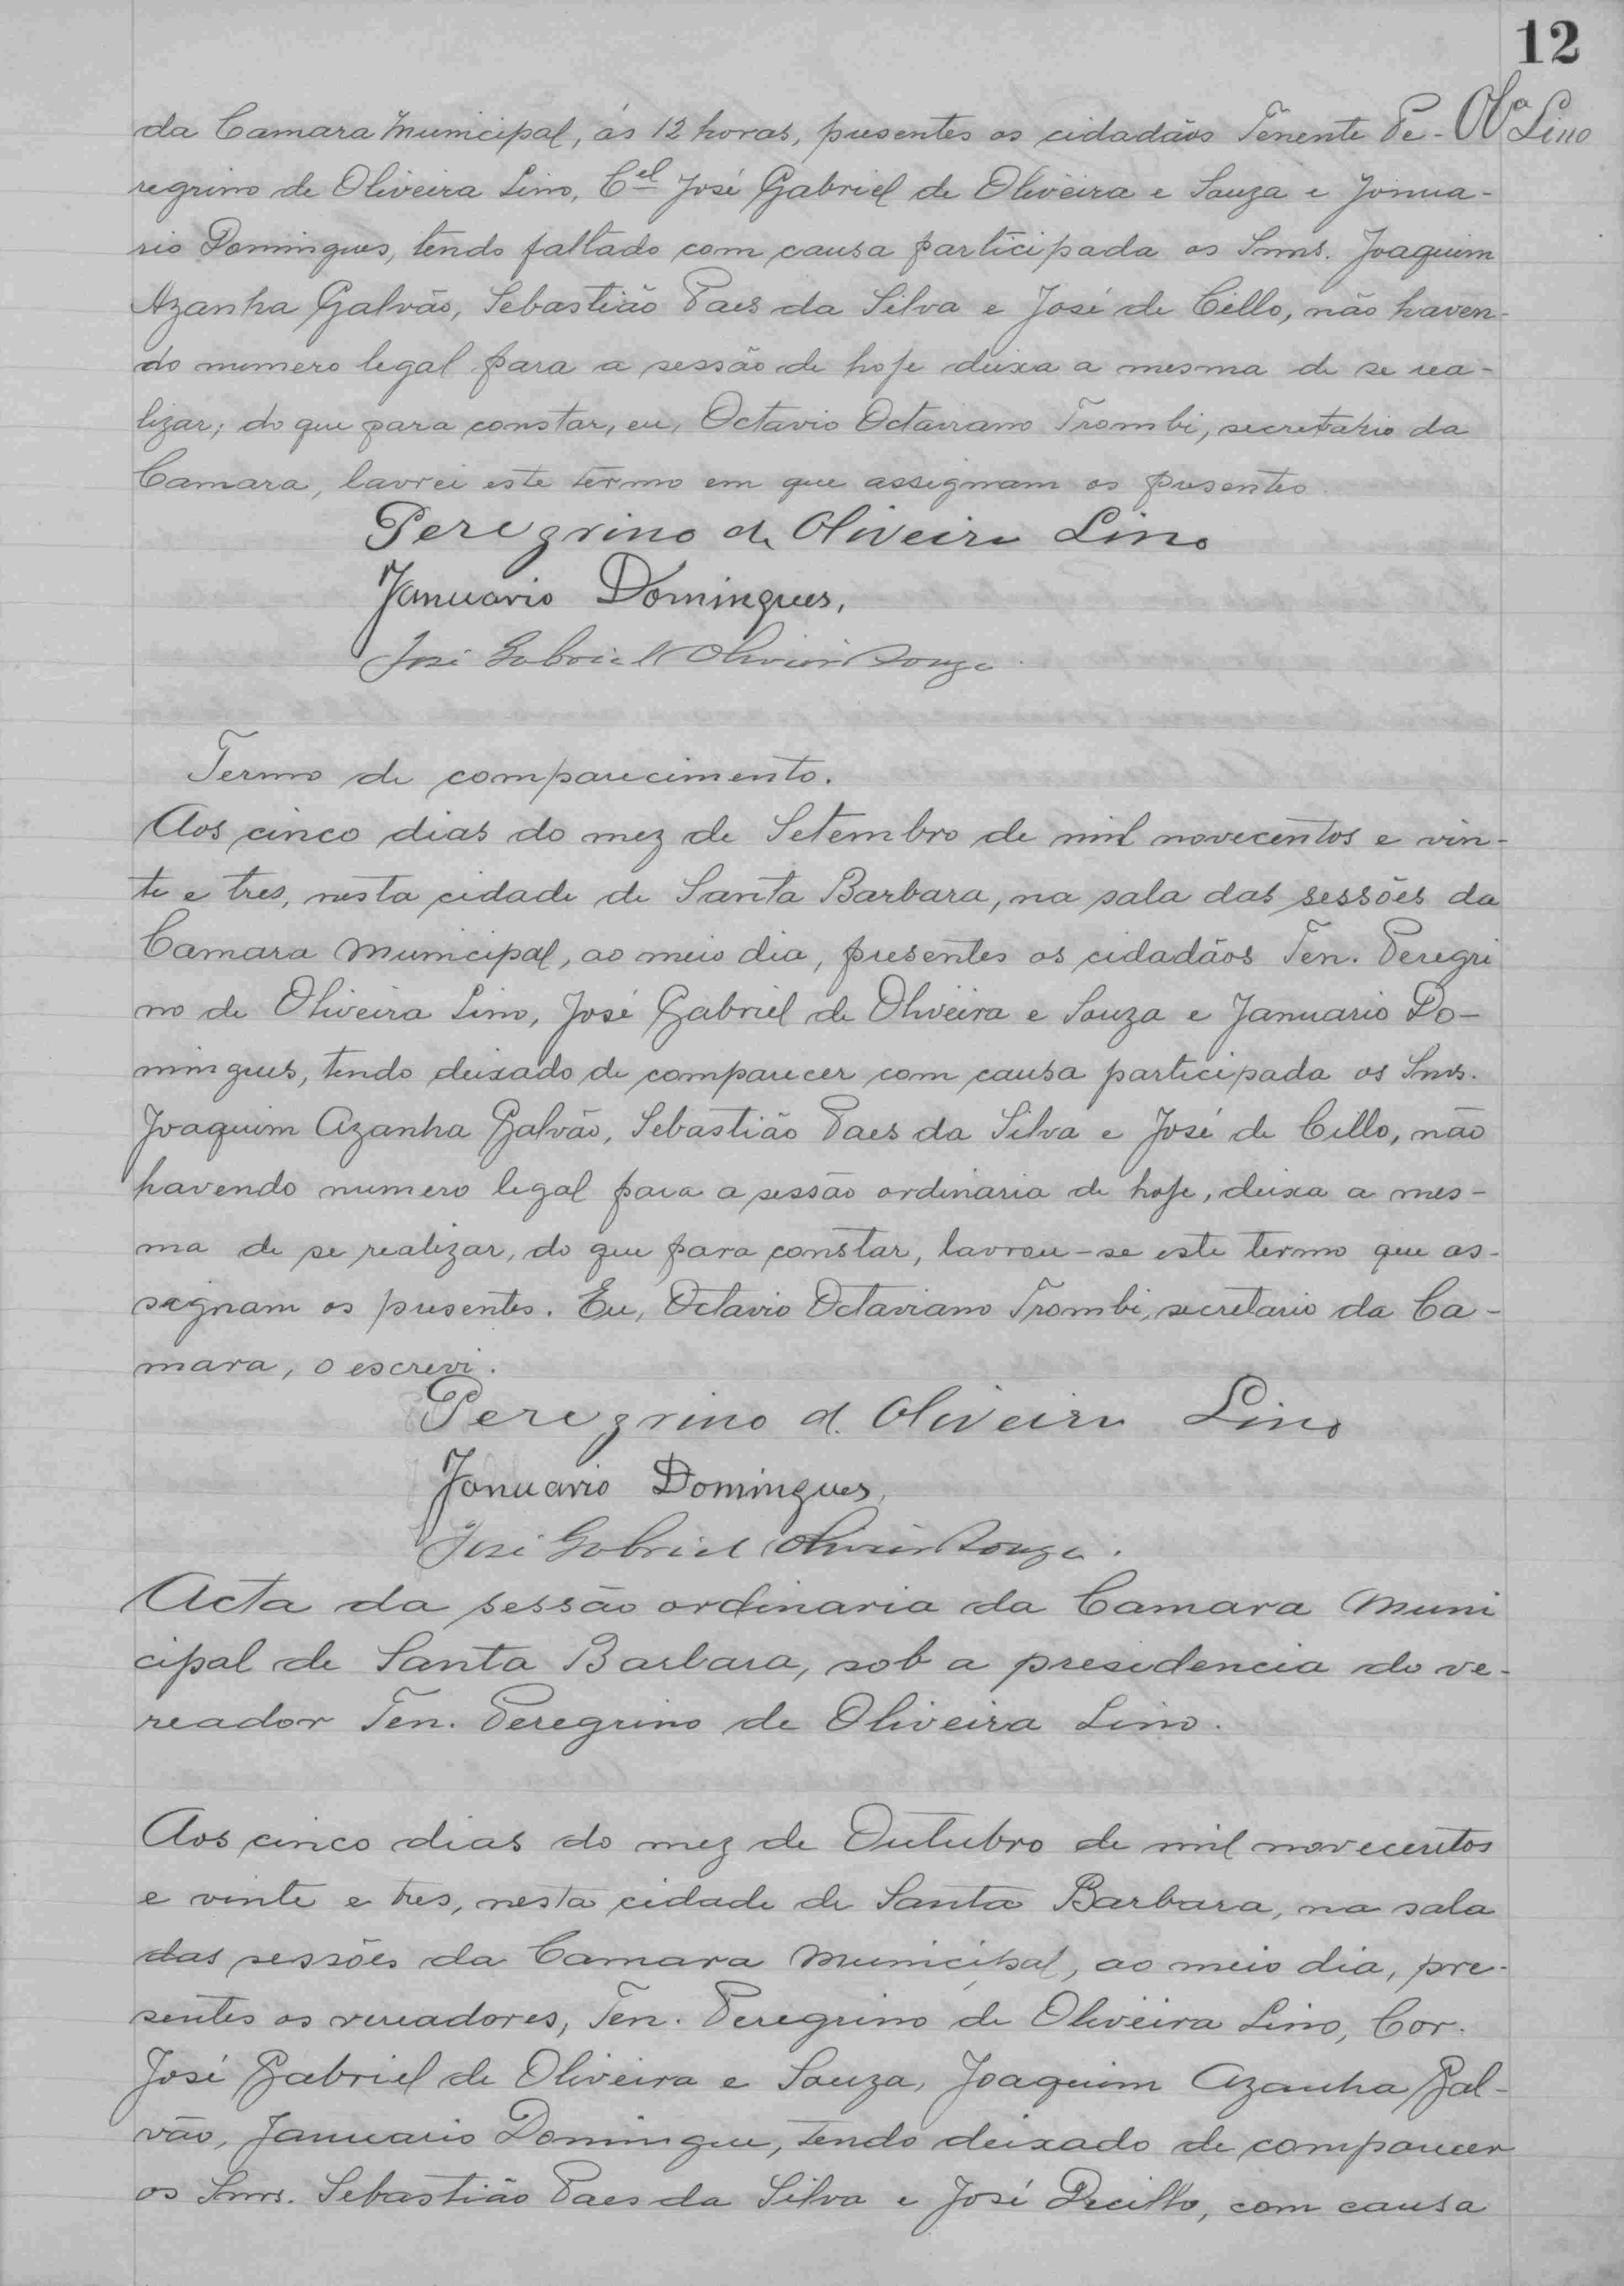 12
Olª Lino
da Camara Municipal, ás 12 horas, presentes os cidadãos Tenente Pe-
regrino de Oliveira Lino, Cel José Gabriel de Oliveira e Souza e Janua-
rio Domingues, tendo faltado com causa participada os Snrs. Joaquim
Azanha Galvão, Sebastião Paes da Silva e José de Cillo, não haven-
do numero legal para a sessão de hoje deixa a mesma de se rea-
lizar; do que para constar, eu, Octavio Octaviano Trombi, secretario da
Camara, lavrei este termo em que assignam os presentes.
Peregrino de Oliveira Lino
Januario Domingues,
José Gabriel Oliveira Souza.
Termo de comparecimento.
Aos cinco dias do mez de Setembro de mil novecentos e vin-
te e tres, nesta cidade de Santa Barbara, na sala das sessões da
Camara Municipal, ao meio dia, presentes os cidadãos Ten. Peregri
no de Oliveira Lino, José Gabriel de Oliveira e Souza e Januario Do-
mingues, tendo deixado de comparecer com causa participada os Snrs.
Joaquim Azanha Galvão, Sebastião Paes da Silva e José de Cillo, não
havendo numero legal para a sessão ordinaria de hoje, deixa a mes-
ma de se realizar, do que para constar, lavrou-se este termo que as-
signam os presentes. Eu, Octavio Octaviano Trombi, secretario da Ca-
mara, o escrevi.
Peregrino d. Oliveira Lino
Januario Domingues,
José Gabriel Oliveira Souza.
Acta da sessão ordinaria da Camara Muni
cipal de Santa Barbara, sob a presidencia do ve-
reador Ten. Peregrino de Oliveira Lino.
Aos cinco dias do mez de Outubro de mil novecentos
e vinte e tres, nesta cidade de Santa Barbara, na sala
das sessões da Camara Municipal, ao meio dia, pre-
sentes os vereadores, Ten. Peregrino de Oliveira Lino, Cor.
José Gabriel de Oliveira e Souza, Joaquim Azanha Gal-
vão, Januario Domingue, tendo deixado de comparecer
os Snrs. Sebastião Paes da Silva e José Decillo, com causa